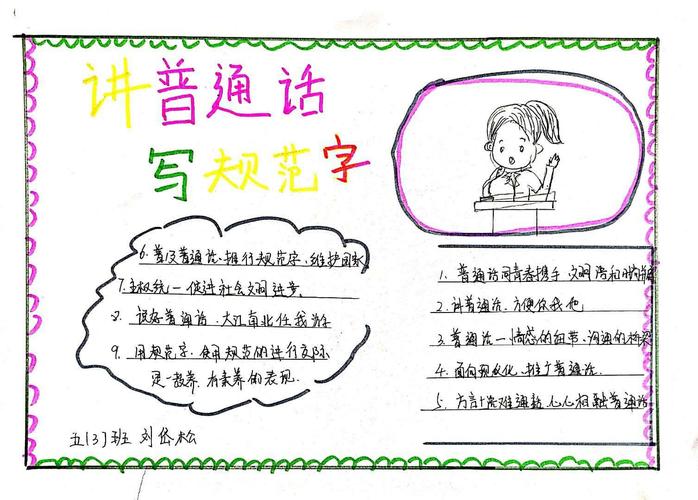 讲普通话
写规范字
6. 普及普通话、推行规范字、维护国家
7. 主权统一 促进社会文明进步
8. 说好普通话 大江南北任我游
9. 用规范字、使用规范的进行交际
是一教养、有素养的表现
1. 普通话同青春携手 文明语和
2. 讲普通话、方便你我他
3. 普通话—情感的纽带、沟通的桥梁
4. 面向现代化、推广普通话
5. 方言土语难通 心心相融普通话
五(3)班 刘岱松